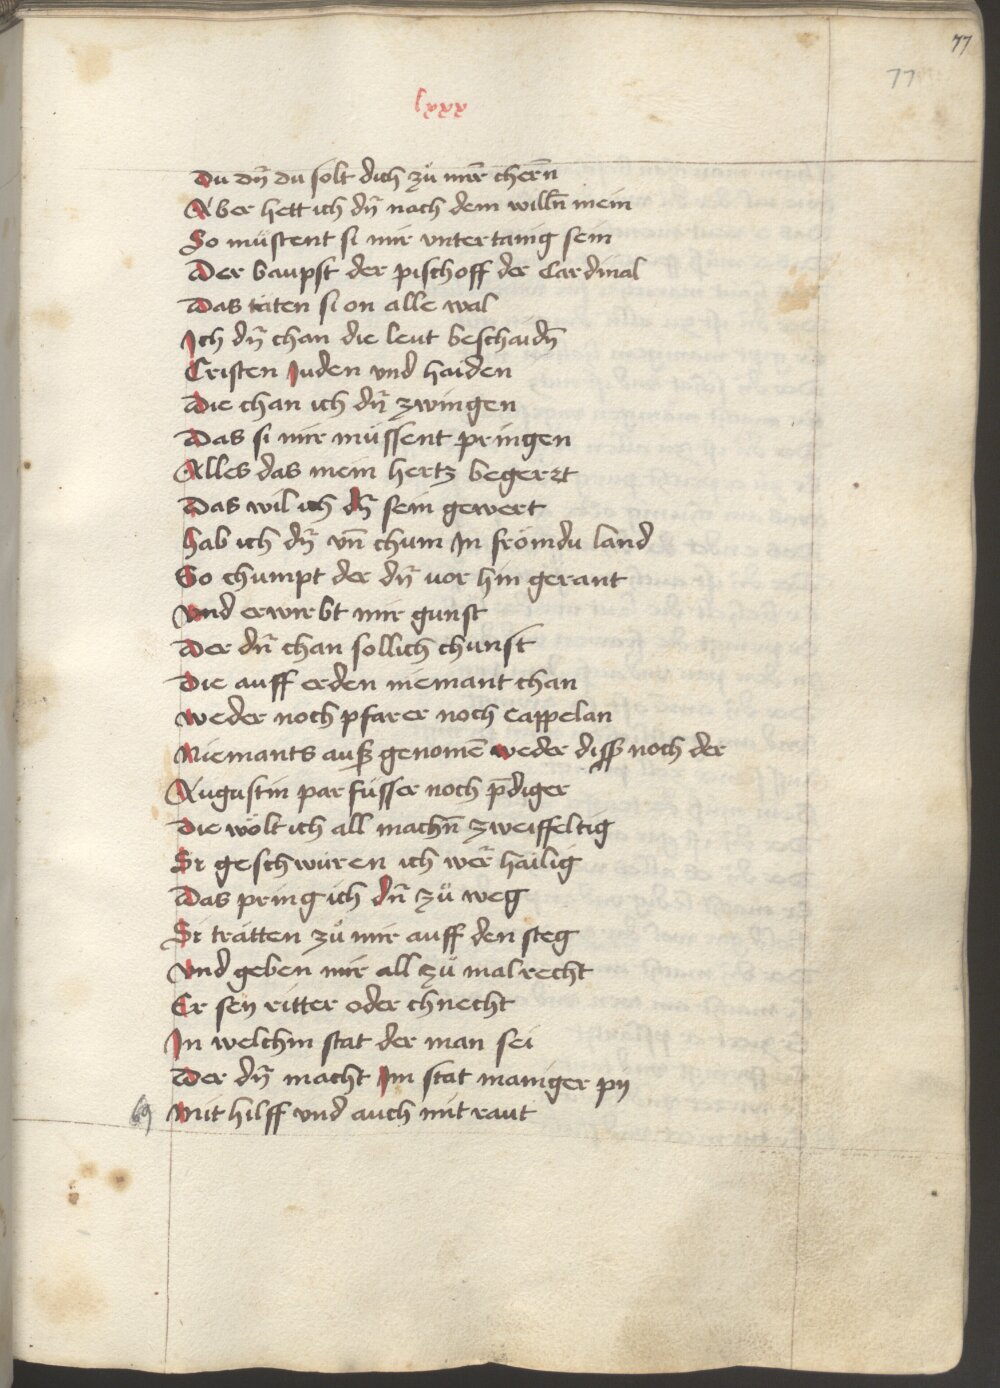 77
77
lxxx
Du dn̄ du solt dich zů mir̄ cher̄n
Aber hett ich dn̄ nach dem willn̄ mein
So můstent si mir vntertanig sein
Der baupst der pischoff der Cardinal
Das täten si on alle wal
Ich dn̄ chan die leut beschaidn̄
Cristen Juden vnd haiden
Die chan ich dn̄ zwingen
Das si mir müssent pringen
Alles das mein hertz begerrt
Das wil ich dn̄ sein gewert
hab ich dn̄ vn̄ chum In frömdu land
So chumpt der dn̄ uor hin gerant
Vnd erwirbt mir gunst
Der dn̄ chan sollich chunst
Die auff erden niemant chan
Weder noch pfarer noch Cappelan
Niemants auß genomē weder diss noch der
Augustin parfüsser noch p̄diger
Die wölt ich all machn̄ zweiffeltig
Si geschwüren ich wer̄ häilig
Das pring ich dn̄ zů weg
Si trätten zů mir auff den steg
Vnd geben mir all zů mal recht
Er sey ritter oder chnecht
In welchm stat der man sei
Der dn̄ macht Im stat maniger py
Mit hilff vnd auch mit raut